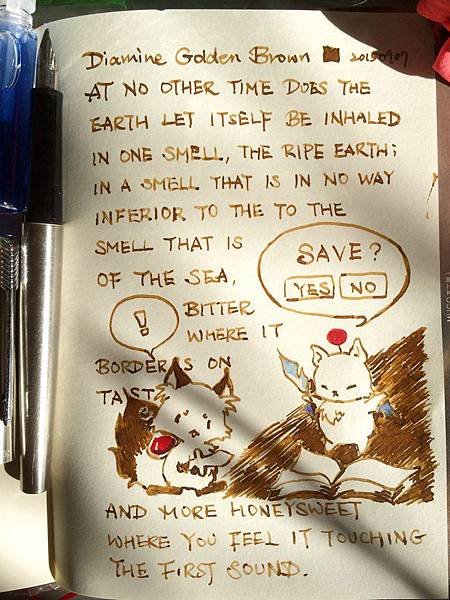 Diamine Golden Brown 20150907
AT NO OTHER TIME DOES THE
EARTH LET ITSELF BE INHALED
IN ONE SMELL, THE RIPE EARTH;
IN A SMELL THAT IS IN NO WAY
INFERIOR TO THE TO THE
SMELL THAT IS
OF THE SEA,
BITTER
WHERE IT
BORDERS ON
TAST
SAVE?
YES NO
!
AND MORE HONEYSWEET
WHERE YOU FEEL IT TOUCHING
THE FIRST SOUND.